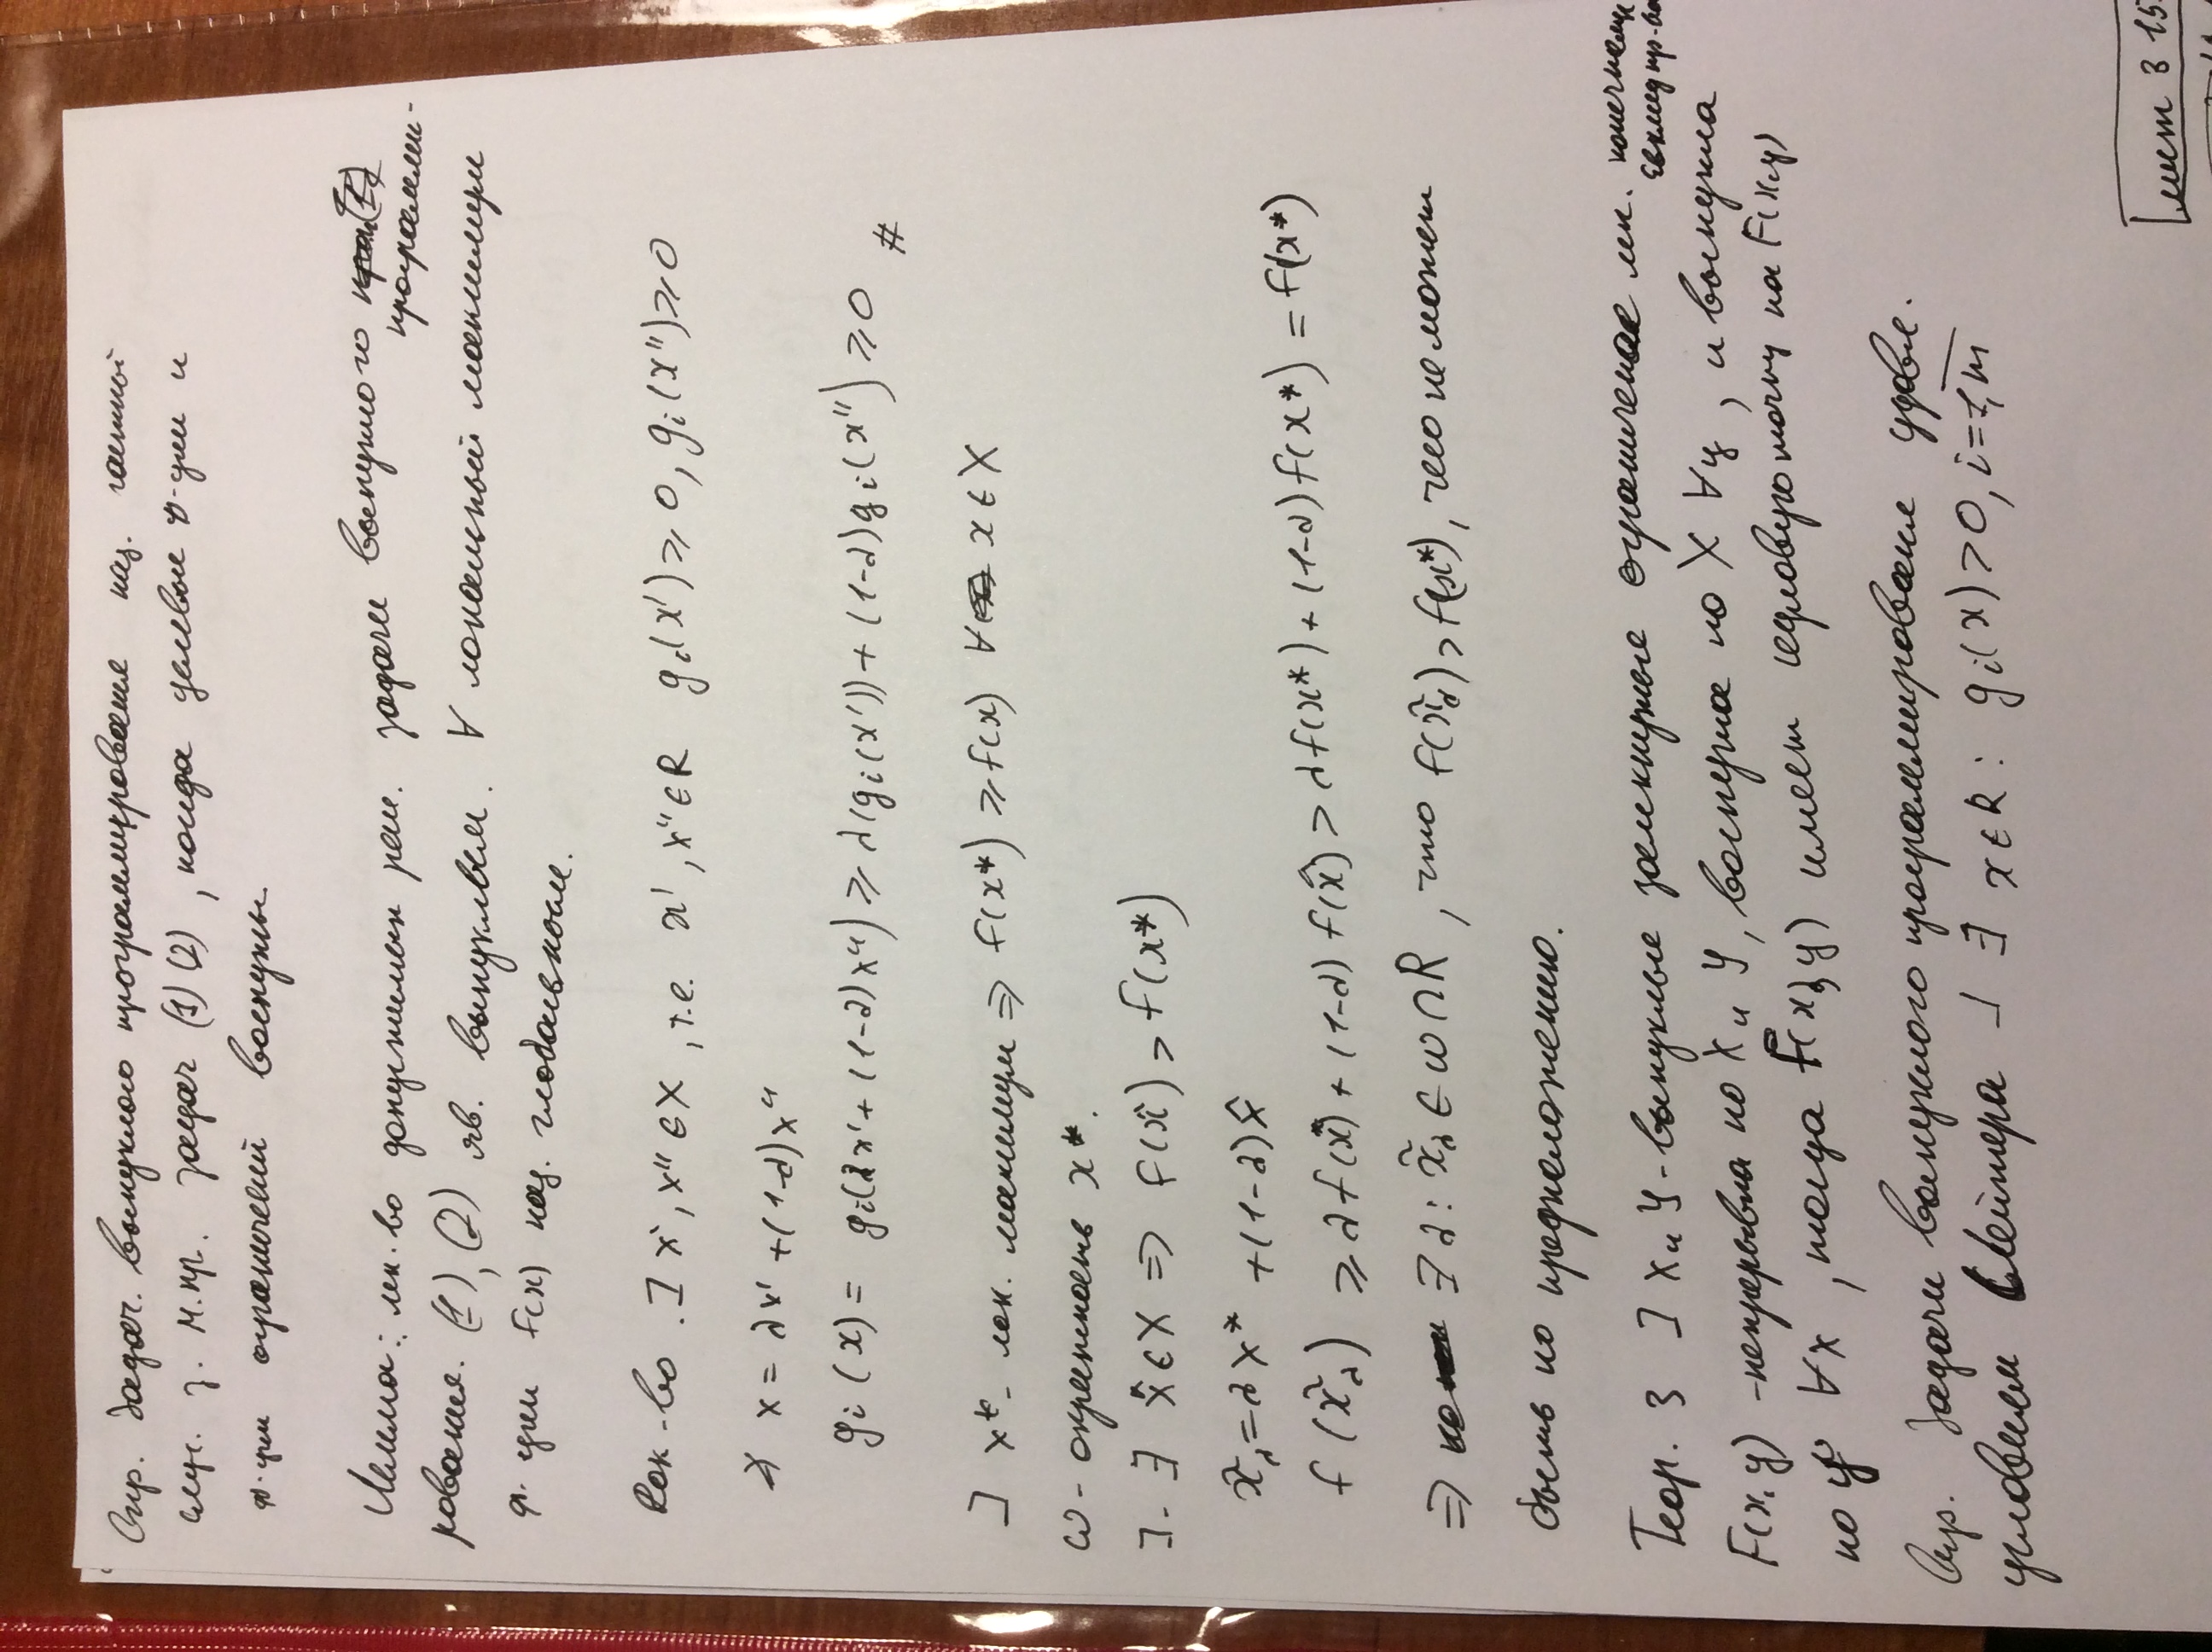 Опр. Задач. выпуклого программирования наз. частный
случ. з. м.пр. задач (1) (2), когда целевые ф-ции и
ф-ции ограничений вогнуты
Лемма: мн-во допустимых реш. задачи выпуклого
программи-
рования. (1), (2) яв. выпуклым. ∀ локальный максимум
ф-ции f(x) наз. глобальным.
Док-во . ] x', x'' ∈ X , т.е. x', x'' ∈ R g_i(x') ⩾ 0, g_i(x'') ⩾ 0
x = λx' + (1-λ)x''
g_i(x) = g_i(λx' + (1-λ)x'') ⩾ λ(g_i(x')) + (1-λ)g_i(x'') ⩾ 0 #
] x* - лок. максимум ⇒ f(x*) ⩾ f(x) ∀ x ∈ X
ω - окрестность x*.
]. ∃ x̂ ∈ X ⇒ f(x̂) > f(x*)
x̃_λ = λx* + (1-λ)x̂
f(x̃_λ) ⩾ λf(x*) + (1-λ) f(x̂) > λf(x*) + (1-λ) f(x*) = f(x*)
⇒ ∃ λ: x̃_λ ∈ ω ∩ R , что f(x̃_λ) > f(x*), чего не может
быть по предположению.
Теор. 3 ] X и Y - выпуклые замкнутые ограничение мн. конечномер
евклид пр-ва
F(x, y) - непрерывна по X и Y, вогнута по X ∀y , и выпукла
по y ∀x , тогда F(x, y) имеет седловую точку на F(x,y)
Опр. Задачи выпуклого программирования удовл.
условиям Слейтера ] ∃ x ∈ R : g_i(x) > 0, i = 1,m̅
лист 3 15.